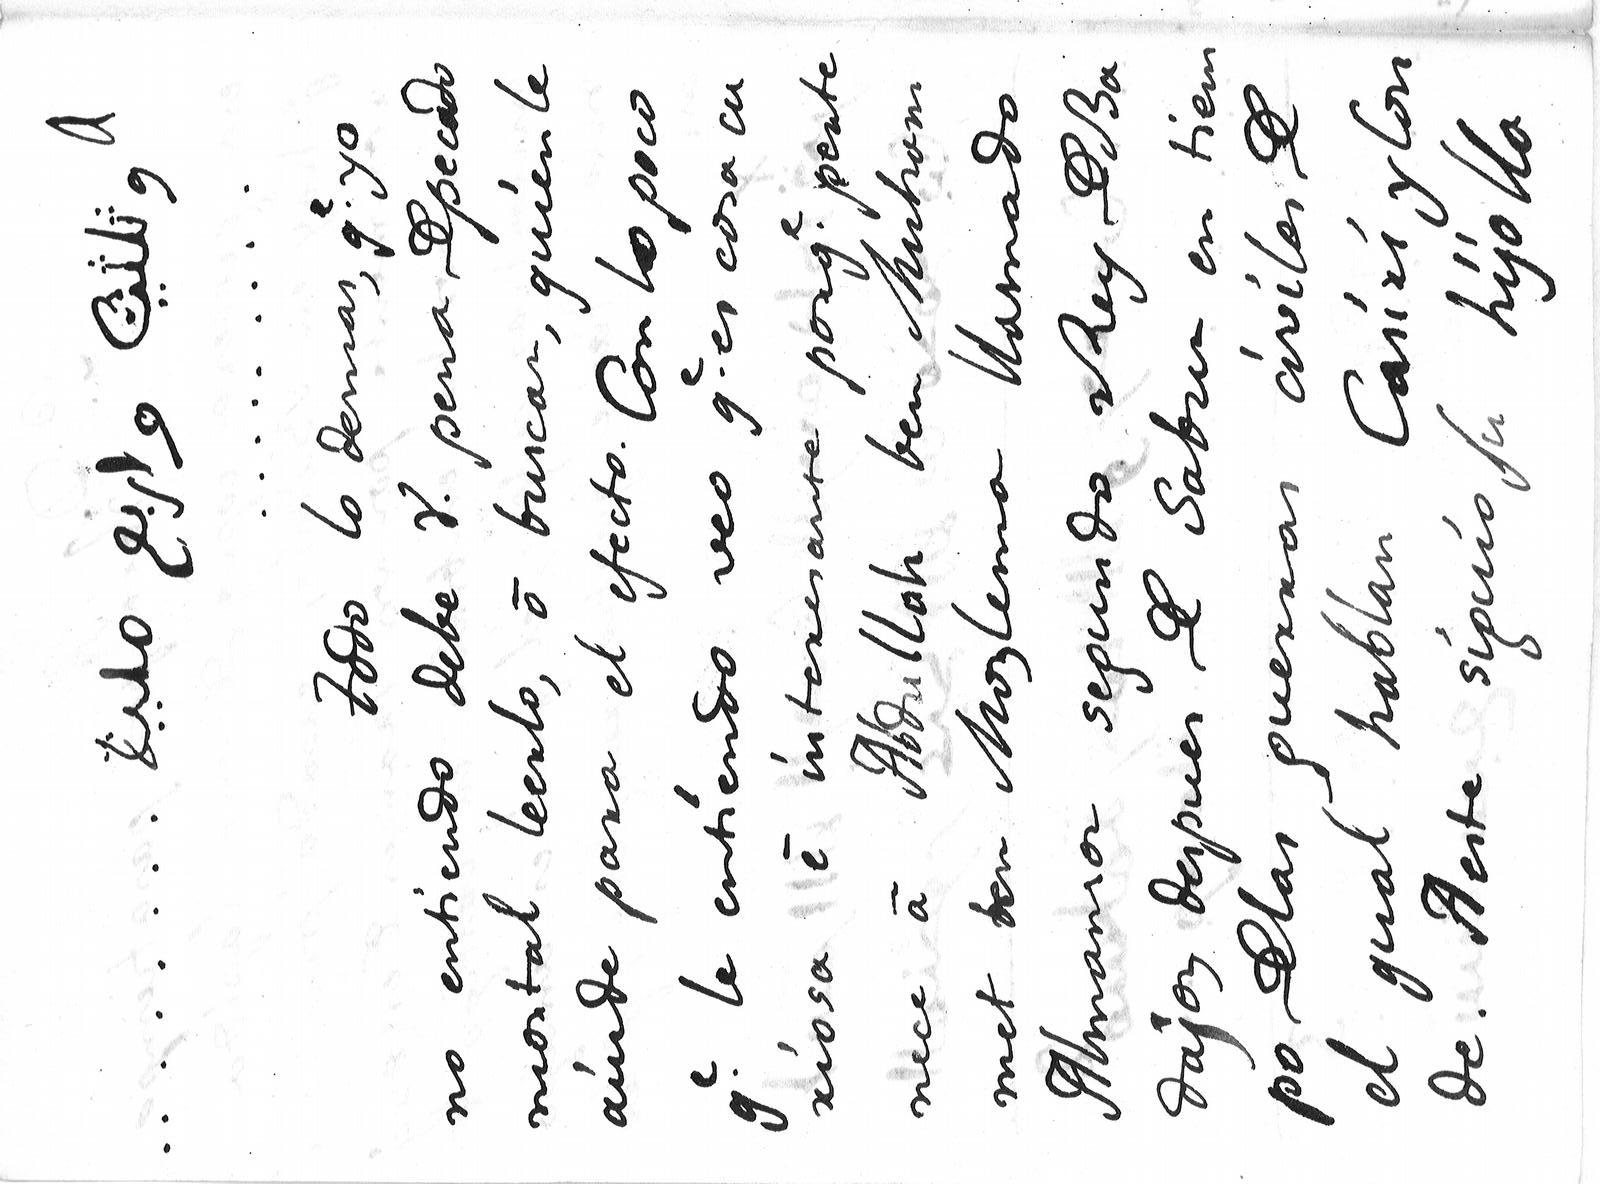 . . . . . . . مليىة واربع و ثلثين و A
. . . . . . .
Todo lo demas, q.e yo
no entiendo debe V. pena D pecado
mortal leerlo, ō buscar, quien le
aiude para el efecto. Con lo poco
q.e le entiendo veo q.e es cosa cu
riosa ē interesante porq.e perte
nece ā Abdullah ben Muhom
met ben Mozlema llamado
Almanor segundo Rey D Ba
dajoz despues D Sabur en tiem
po D las guerras civiles D
el qual hablan Casiri y Con
de. A este siguio su hijo Ua